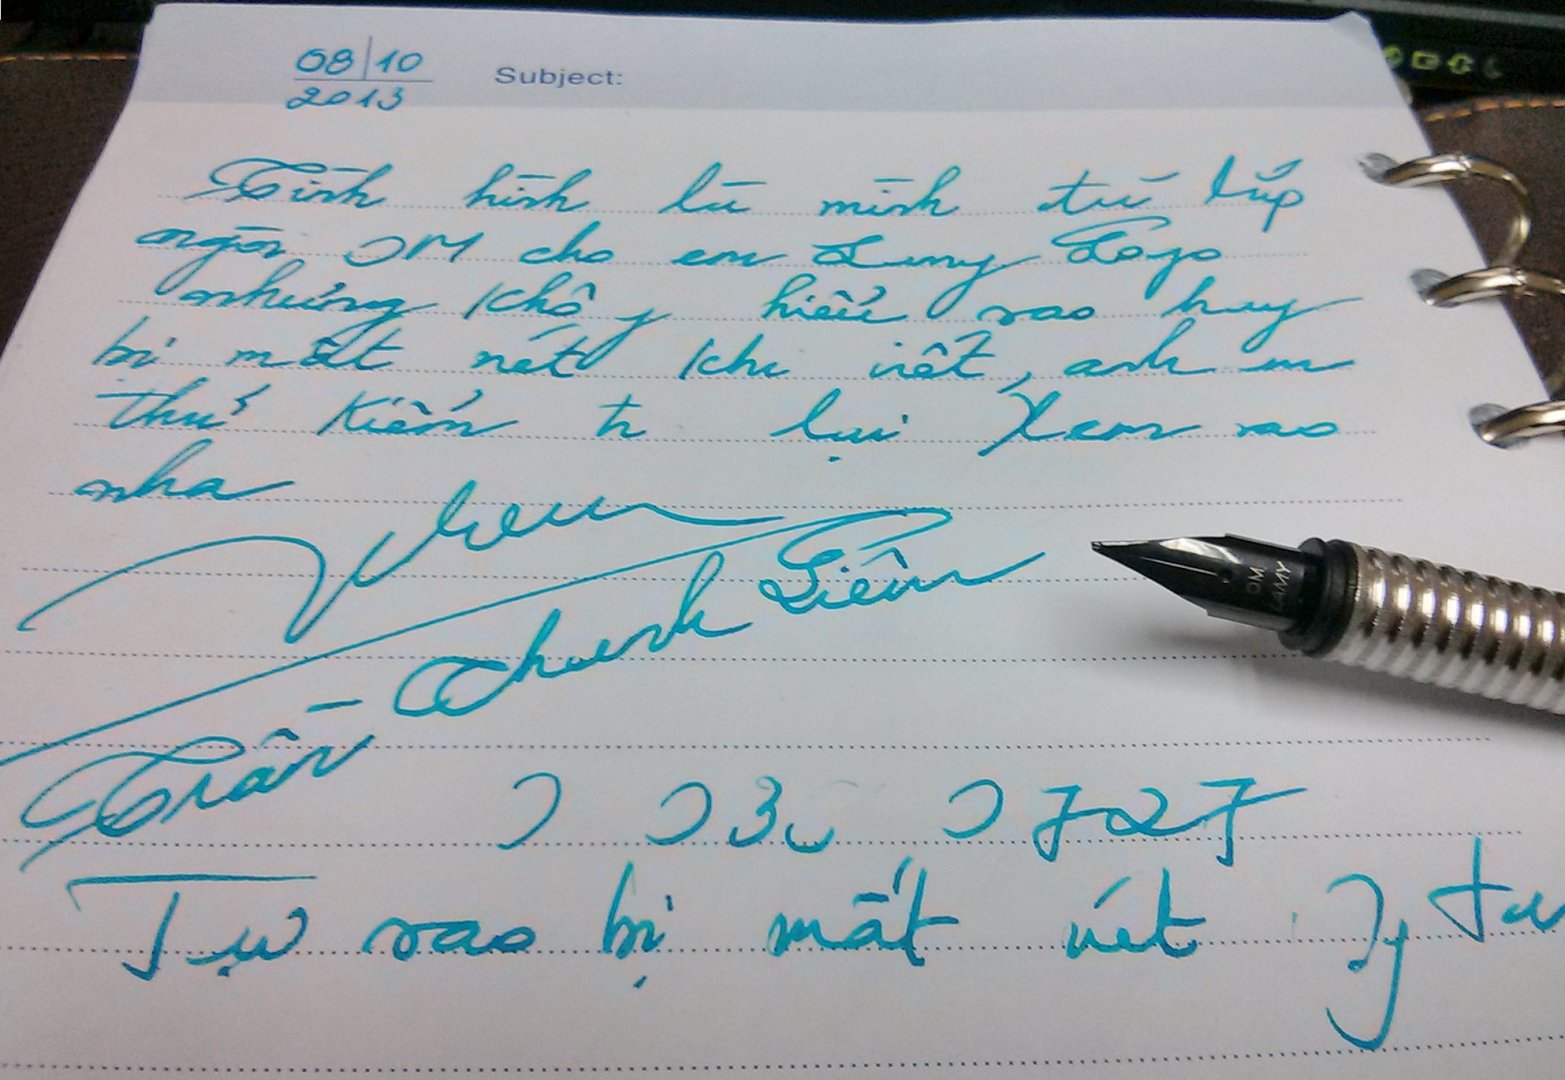 08/10
2013
Subject:
Tình hình là mình tự lắp
ngòi OM cho em Lamy Logo
nhưng không hiểu sao hay
bị mất nét khi viết, anh em
thử kiểm tr lại xem sao
nha
Trần Thanh Liêm
OM
LAMY
Tự sao bị mất nét